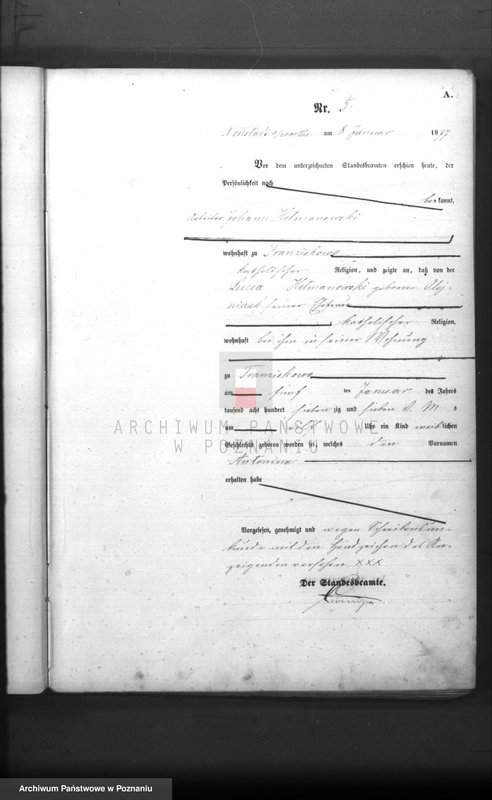 A.
Nr. 5.
Neustadt a/Warthe am 8 Januar 1877
Vor dem unterzeichneten Standesbeamten erschien heute, der
Persönlichkeit nach
be kannt,
Arbeiter Johann Helmanowski
wohnhaft zu Franziskowo
katholischer Religion, und zeigte an, daß von der
Lucia Helmanowski geborene
seiner Ehefrau
katholischer Religion,
wohnhaft bei ihm in seiner Wohnung
zu Franziskowo
am fünf ten Januar des Jahres
tausend acht hundert sieben zig und sieben
um Uhr ein Kind weiblichen
Geschlechts geboren worden sei, welches den Vornamen
Antonina
erhalten habe
Vorgelesen, genehmigt und wegen Schreibensun-
kunde mit den Handzeichen des An-
zeigenden versehen XXX
Der Standesbeamte.
ARCHIWUM PAŃSTWOWE
W POZNANIU
Archiwum Państwowe w Poznaniu